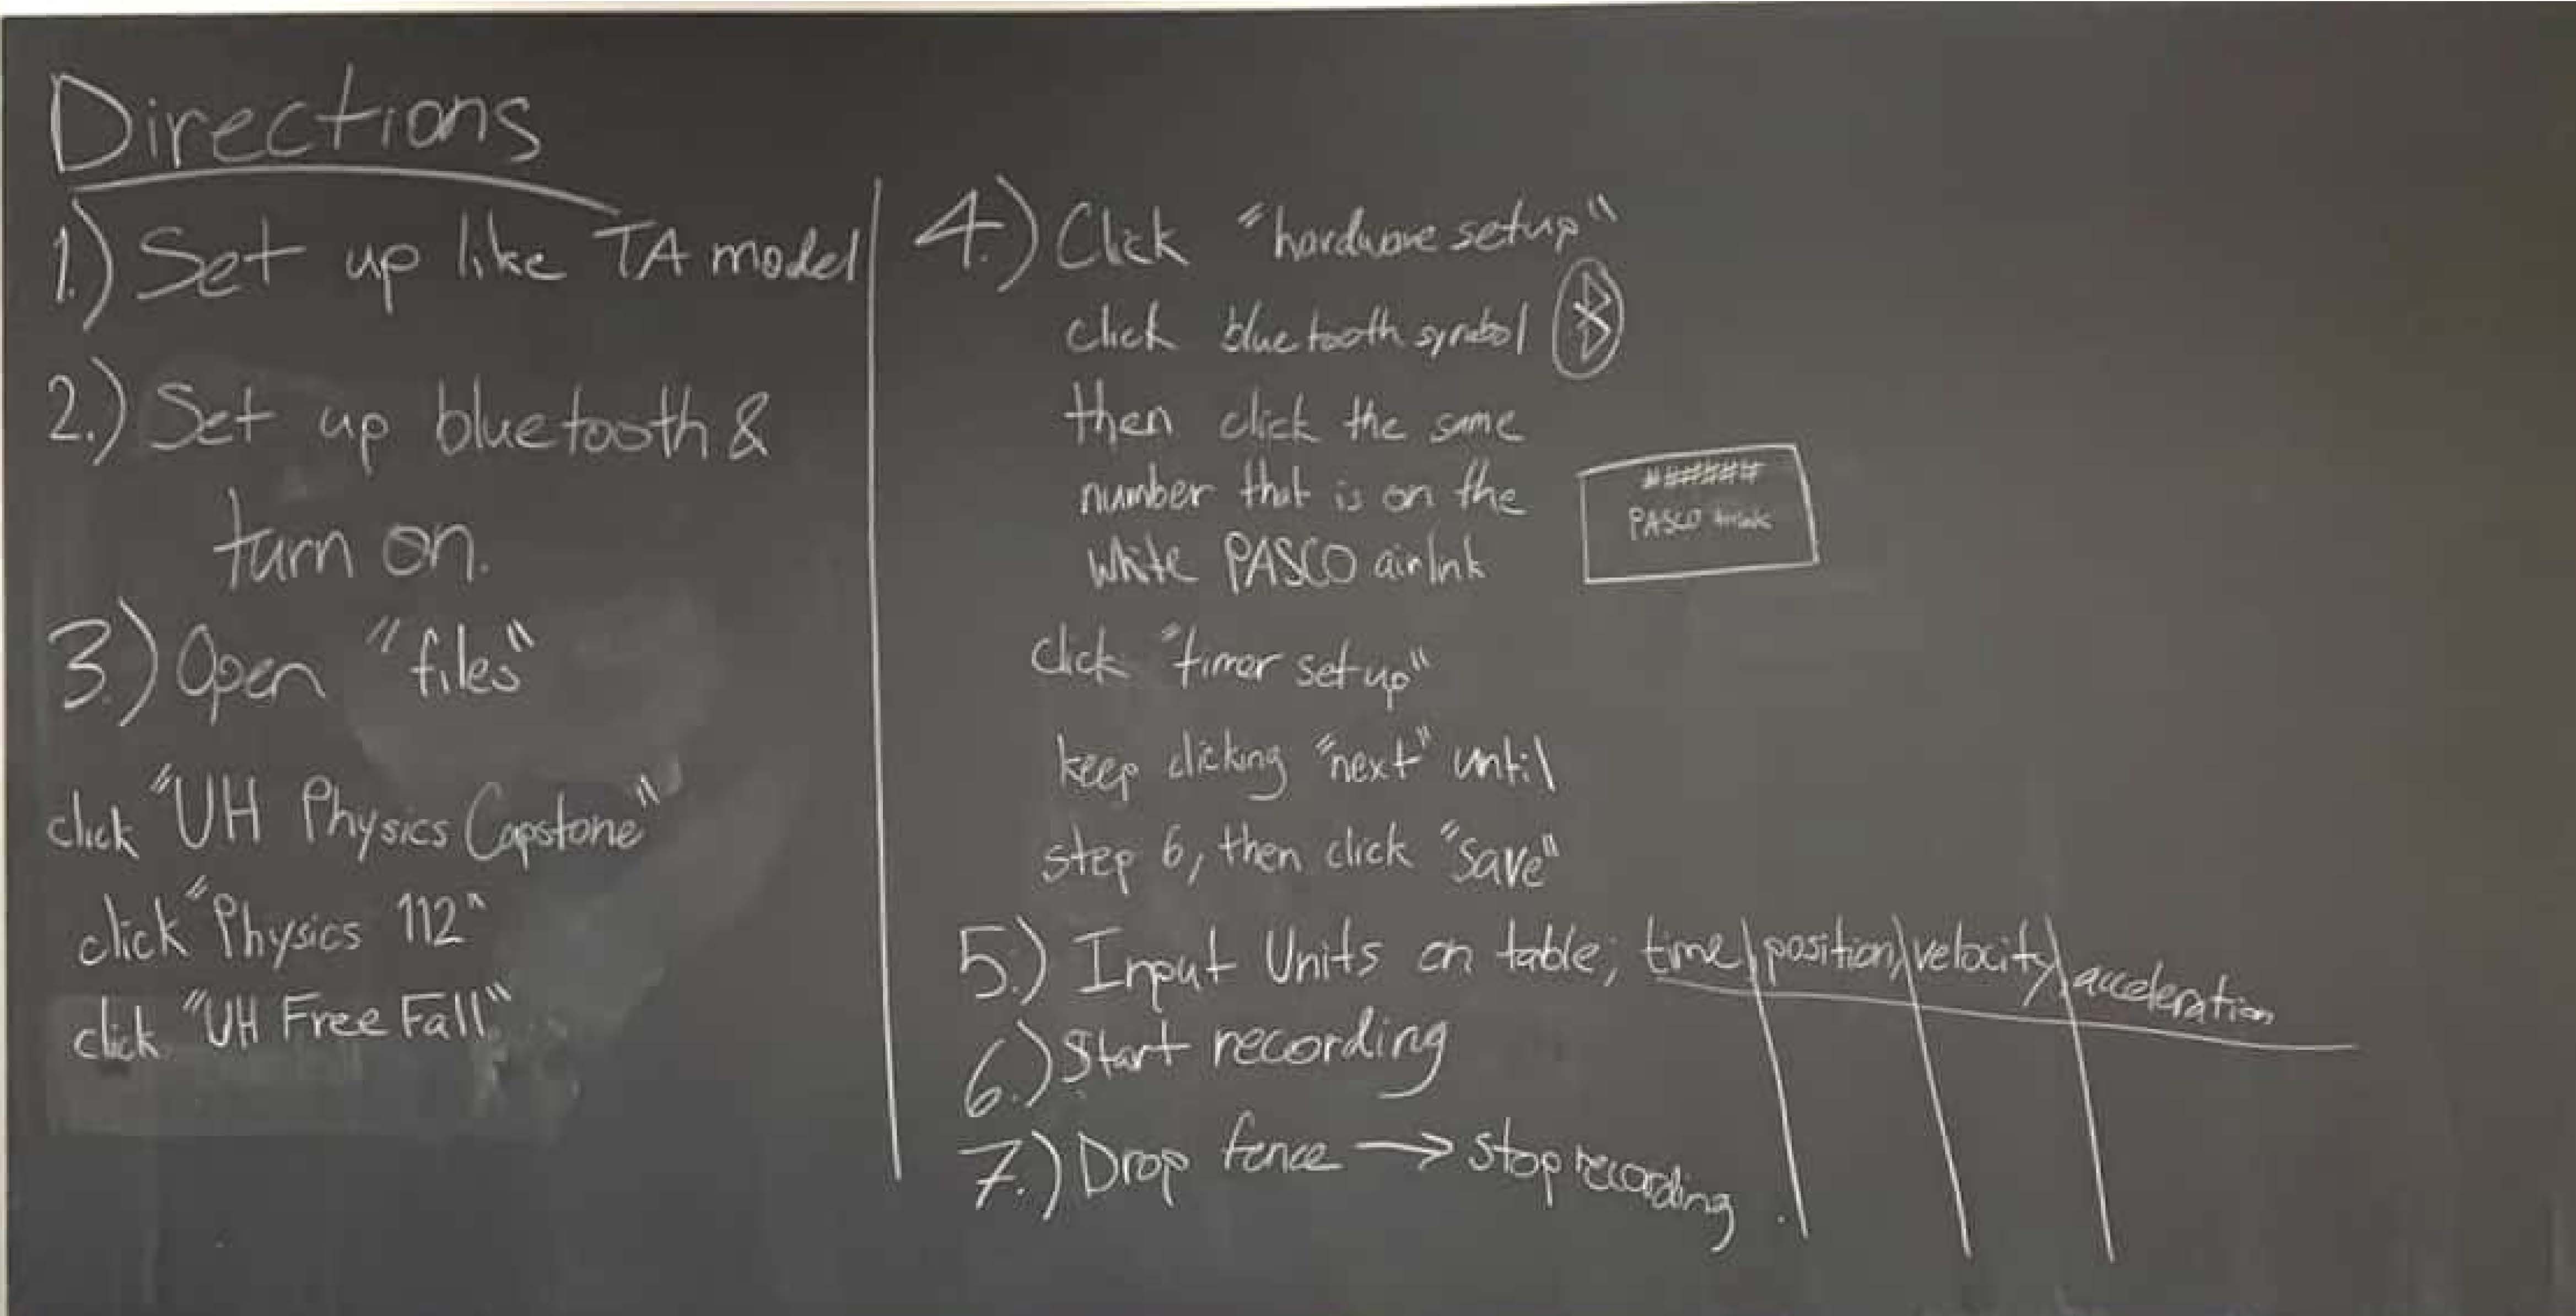 Directions
1.) Set up like TA model
2.) Set up bluetooth &
turn on.
3.) Open "files"
click "UH Physics Capstone"
click "Physics 112"
click "UH Free Fall"
4.) Click "hardware setup"
click bluetooth symbol
then click the same
number that is on the
white PASCO airlink
######
PASCO airlink
click "timer set up"
keep clicking "next" until
step 6, then click "save"
5.) Input Units on table; time, position, velocity, acceleration
6.) Start recording
7.) Drop fence → stop recording